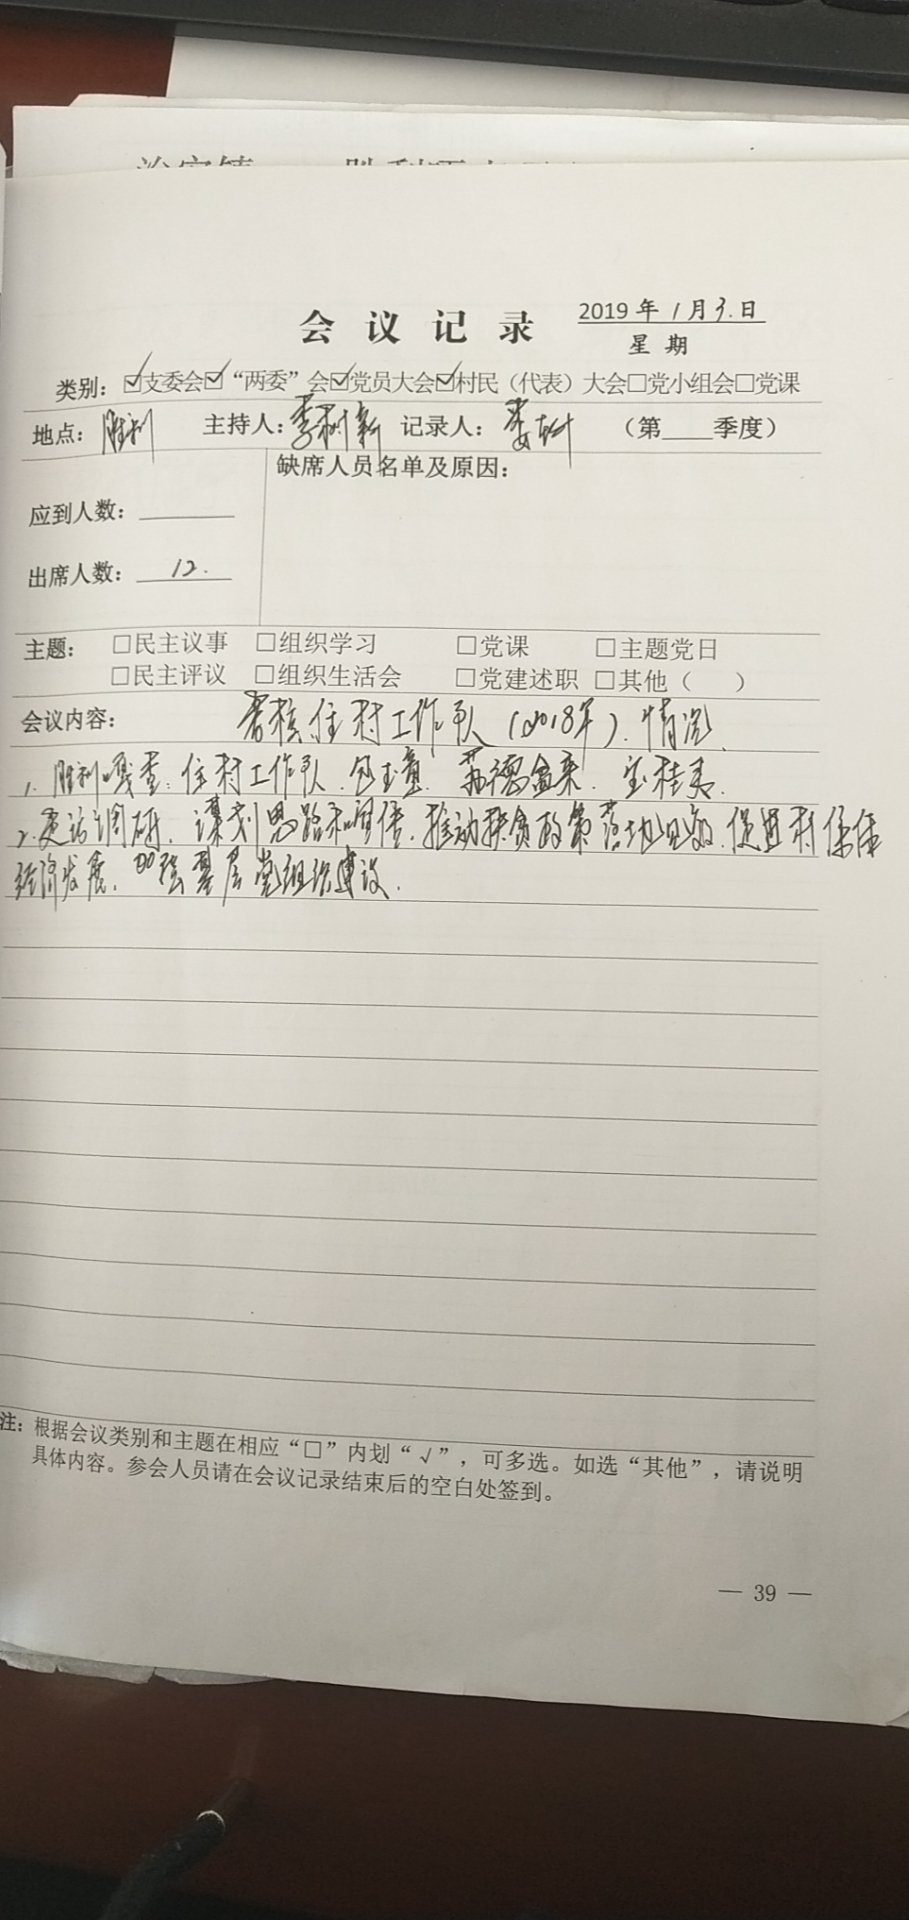 会议记录 2019年1月3日
星期
类别：☑支委会☑“两委”会☑党员大会☑村民（代表）大会□党小组会□党课
地点：胜利 主持人：李树新 记录人： （第____季度）
缺席人员名单及原因：
应到人数：
出席人数：12.
主题：□民主议事 □组织学习 □党课 □主题党日
□民主评议 □组织生活会 □党建述职 □其他（ ）
会议内容： 考核住村工作队（2018年）.情况.
1. 胜利嘎查：住村工作队.包玉章. 苏德金来. 宝桂英.
2. 走访调研. 谋划思路和，推动扶贫政策落地见效.促进村集体
经济发展. 加强基层党组织建设.
注：根据会议类别和主题在相应“□”内划“√”，可多选。如选“其他”，请说明
具体内容。参会人员请在会议记录结束后的空白处签到。
— 39 —